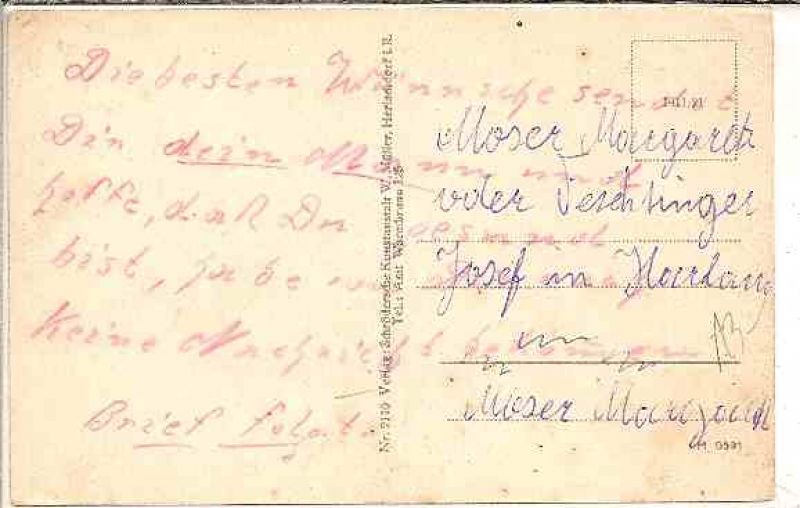 Die besten Wünsche sendet
Dir dein Mann und
hoffe, daß Du gesund
bist, habe von
Keine Nachricht bekommen
Brief folgt.
Nr. 2110 Verlag: Schröders'sche Kunstanstalt W. Müller, Herischdorf i. R.
Tel.: Amt Warmbrunn
Moser Margarete
oder Teschlinger
Josef in Harland
Moser Margarete